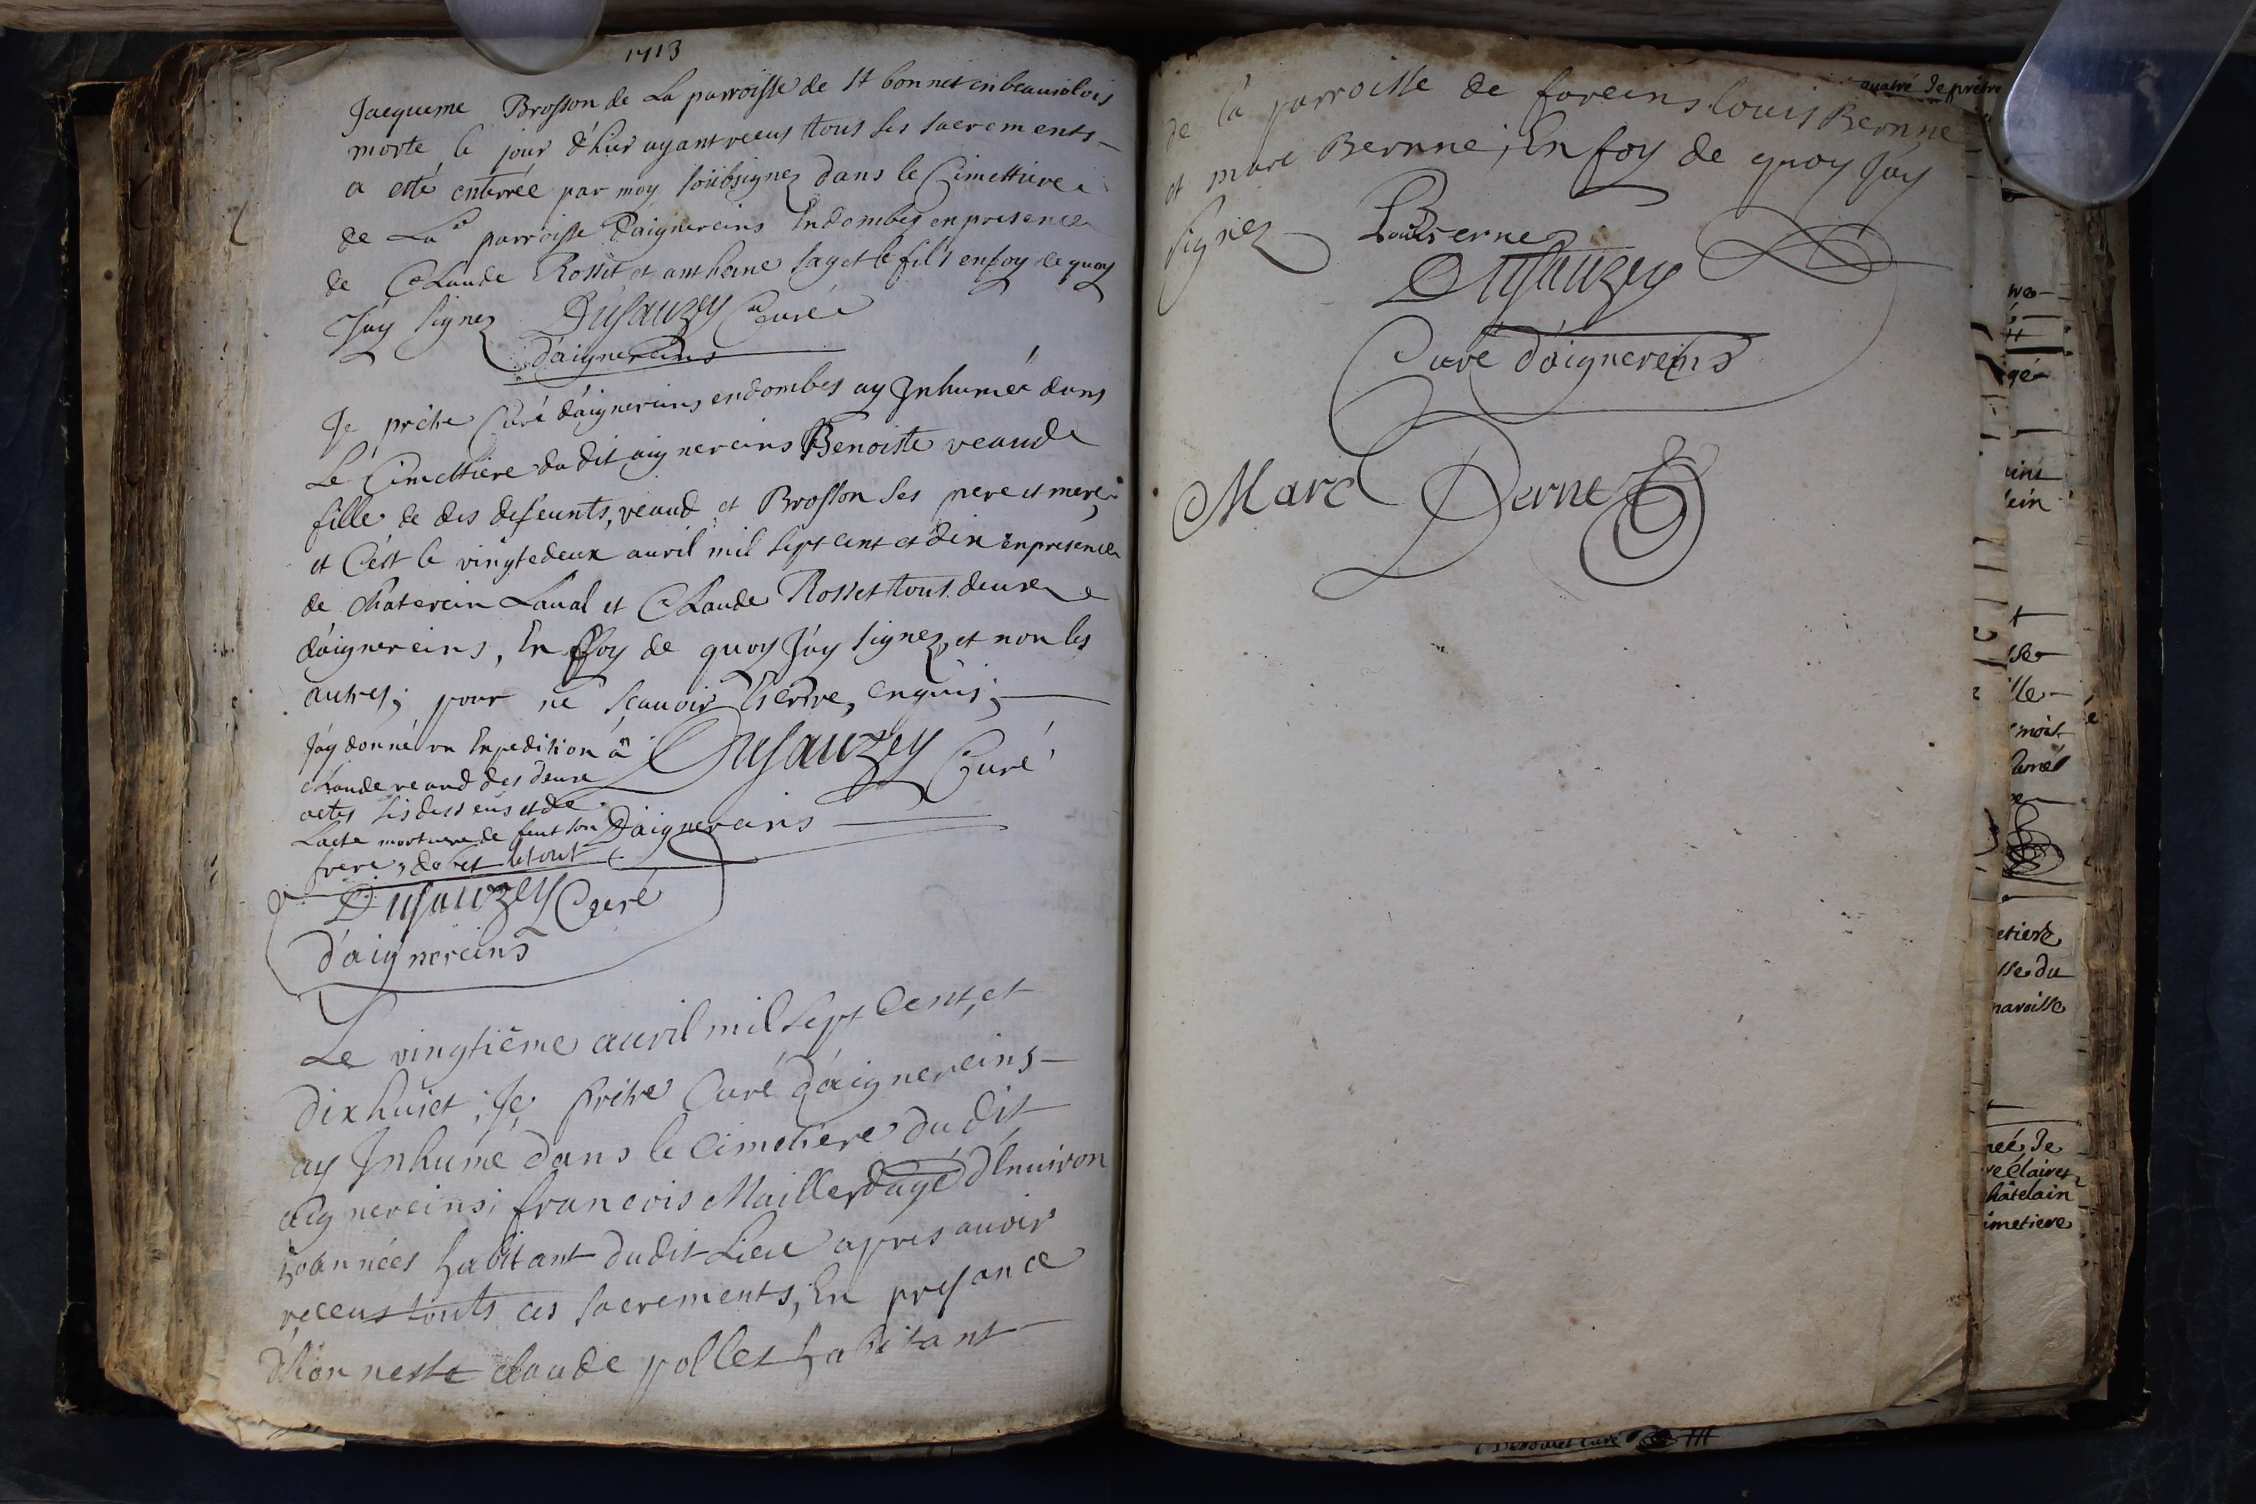 1713
Jacqueme Brosson de La parroisse de St bonnet en beauiolois
morte le jour d'hier ayant receus ttous ses sacrements
a esté enterrée par moy soubsignez dans le Cimettiere
de La parroisse D'aignereins En dombes en presence
de CLaude Rosset et anthoine sayet le fils en foy de quoy
J'ay signez DuSauzey Curé
d'aignereins
Je prêtre Curé d'aignereins en dombes ay Inhumée dans
Le Cimettiere du dit aignereins Benoiste veaude
fille de des defeunts, veaud et Brosson ses pere et mere,
et C'est le vingtedeux auril mil sept cent et dix en presence
de Chaterin Laual et CLaude Rosset ttous deux
d'aignereins, En ffoy de quoy J'ay signez, et non les
autres; pour ne scauoir Escrire, enquis;
J'ay donné vn Expedition â
claude veaud des deux
actes sis desseus et de
Lacte mortuere de feut son
frere, le tout
DuSauzey Curé
D'aignereins
DuSauzey Curé
d'aignereins
Le vingtiême auril mil sept Cent, et
dixhuict; Je prêtre Curé d'aignereins
ay Inhumé dans le Cimetiere du dit
aignereins; francois Mailler d'agé d'Enuiron
années habitant dudit Lieu apres auoir
receus touts ces sacrements, En presance
D'honneste claude pollet habitant
de la parroisse de fareins louis Bernne
et marc Bernne; En foy de quoy J'ay
signez Louis Berne
DuSauzey
Curé d'aignereins
Marc Berne
quatre de prêtre
gé
etiere
sse du
paroisse
née de
Claire
hâtelain
imetiere
Curé